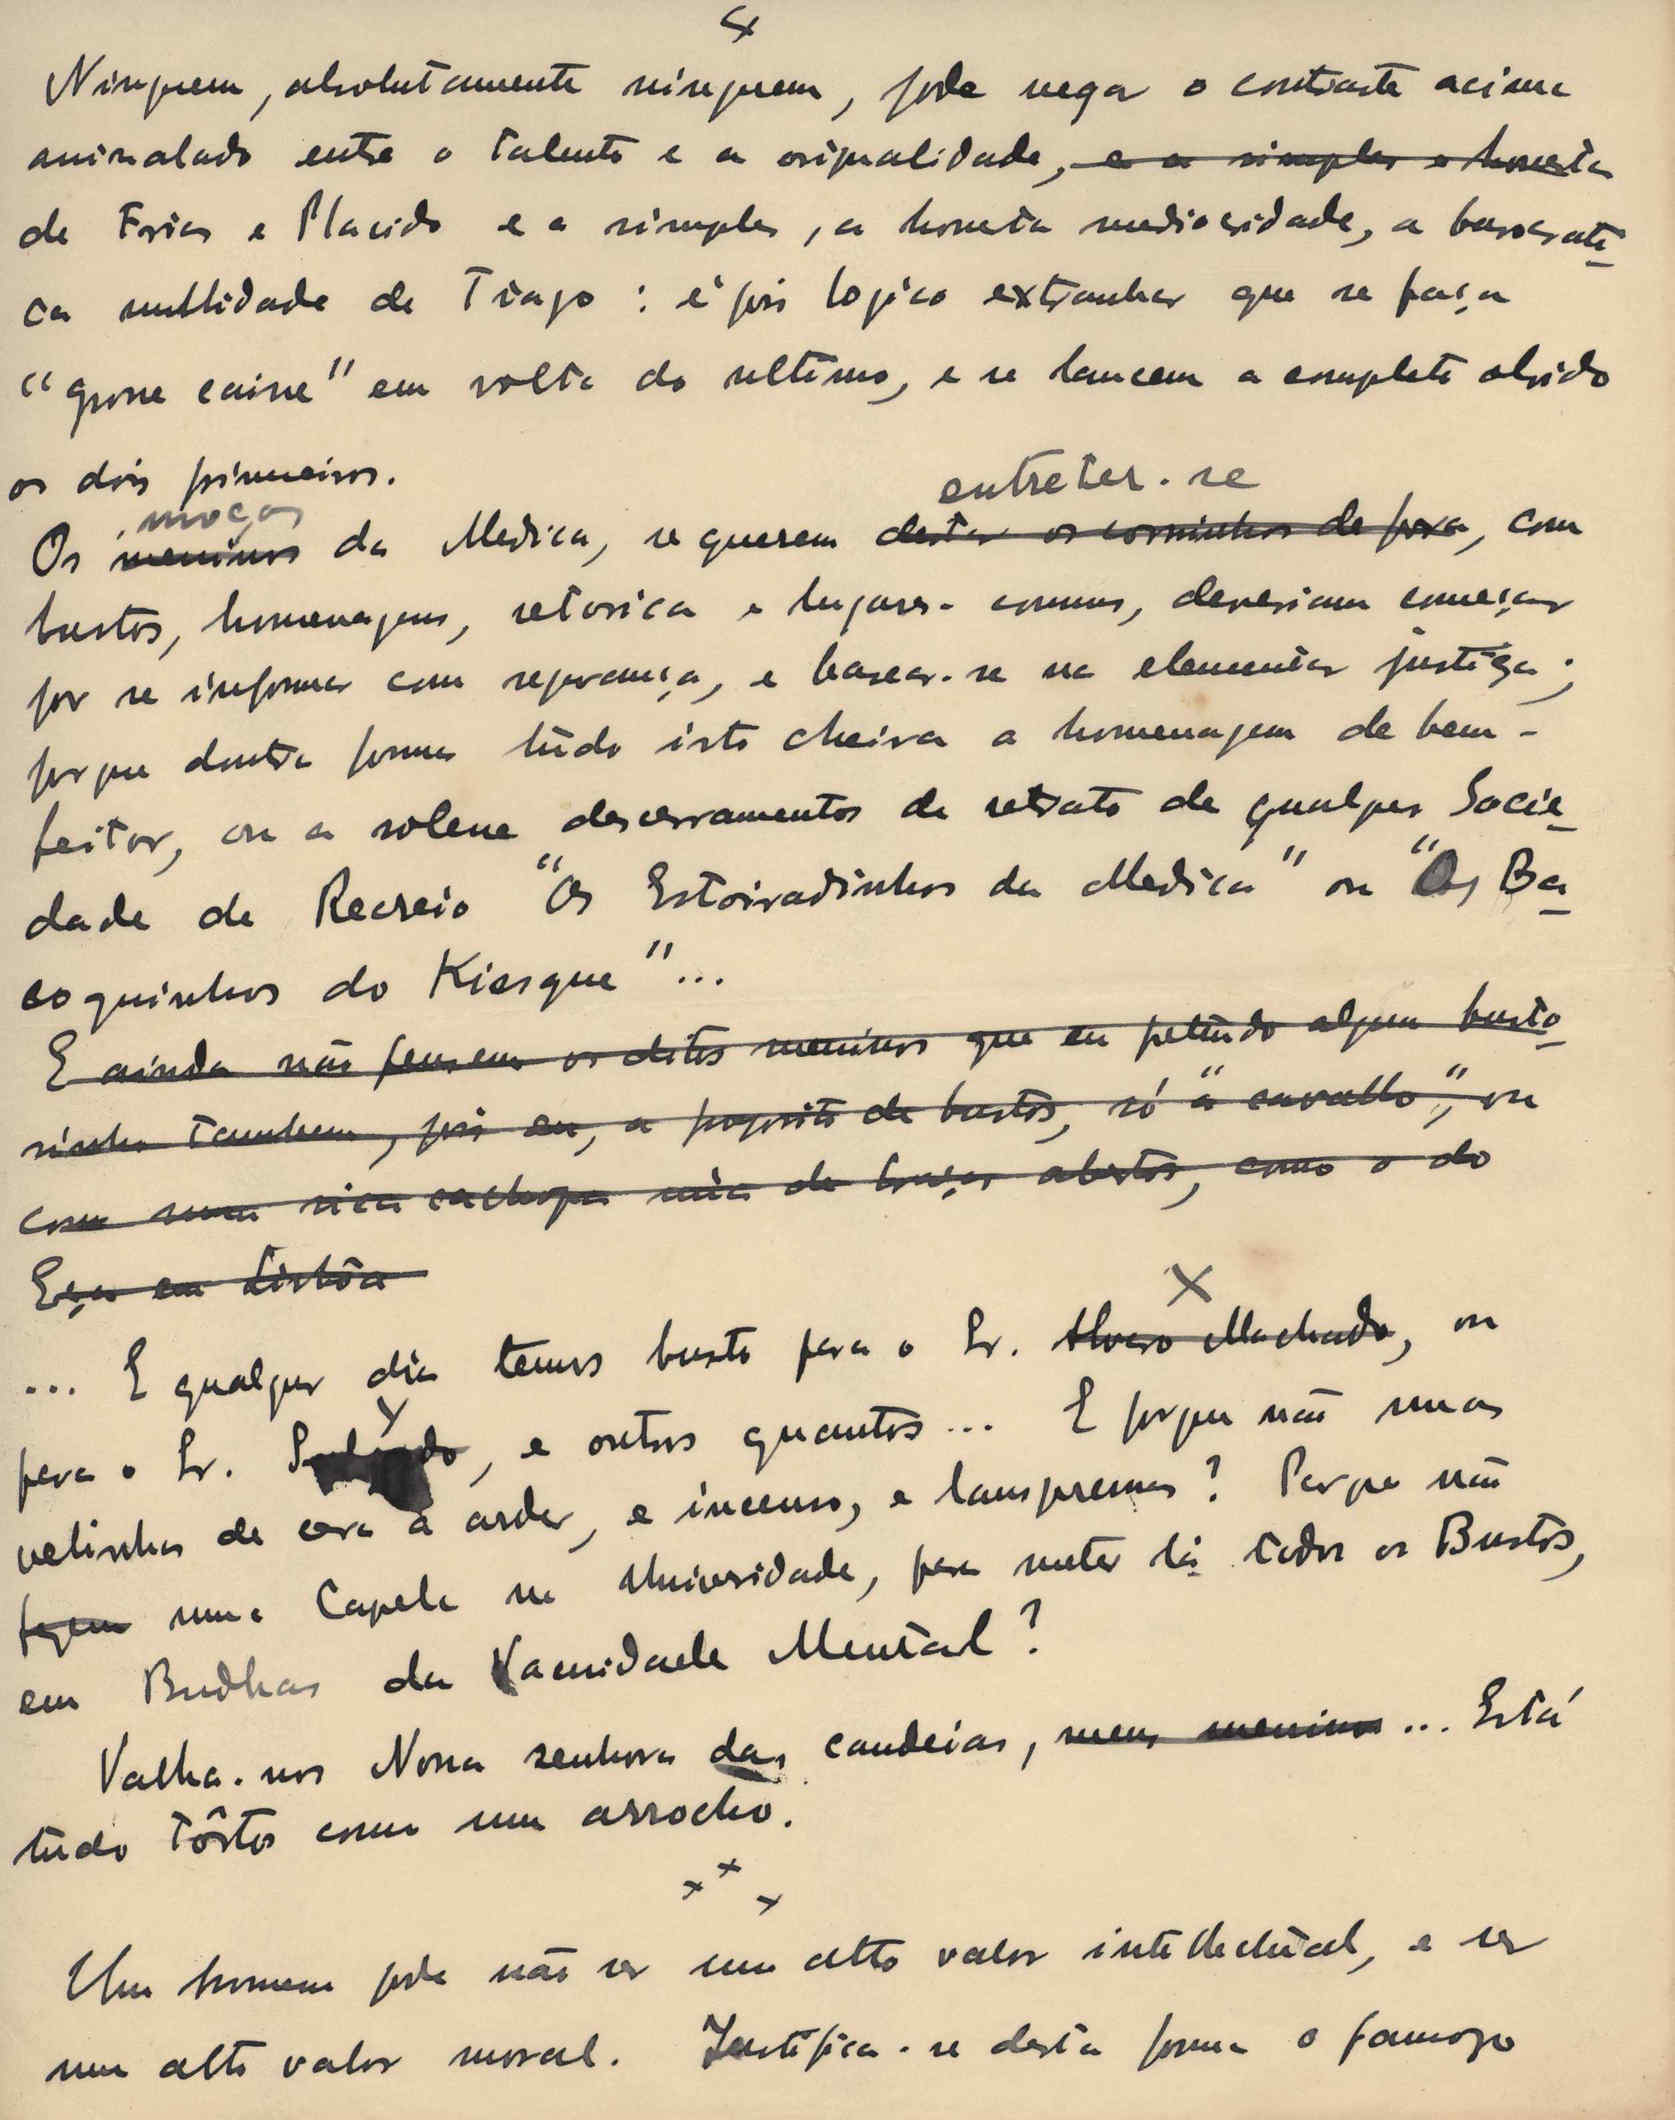 4
Ninguem, absolutamente ninguem, pode negar o contraste acima
assinalado entre o talento e a originalidade, e a simples e honesta
de Frias e Placido e a simples, a honesta mediocridade, a burocrati-
ca nullidade de Tiago: é pois logico extranhar que se faça
"grosse caisse" em volta do ultimo, e se lancem a completo olvido
os dois primeiros.
moços entreter-se
Os meninos da Medica, se querem deitar os corninhos de fora, com
bustos, homenagens, retorica e lugares-comuns, deveriam começar
por se informar com segurança, e basear-se na elementar justiça;
porque doutra forma tudo isto cheira a homenagem de bem-
feitor, ou a solene descerramentos de retrato de qualquer Socie-
dade de Recreio "Os Estoiradinhos da Medica" ou "Os Ba-
coquinhos do Kiosque"...
E ainda não pensem os ditos meninos que eu pretendo algum busto-
sinho tambem, pois eu, a proposito de bustos, só "a cavallo", ou
com uma rica cachopa núa de braços abertos, como o do
Eça em Lisbôa
X
... E qualquer dia temos busto para o Sr. Alvaro Machado, ou
Y
para o Sr. , e outros quantos... E porque não umas
velinhas de cera a arder, e incenso, e lausperenes? Porque não
fazem uma Capela na Universidade, para meter lá todos os Bustos,
em Budhas da Vacuidade Mental?
Valha-nos Nossa senhora das candeias, meus meninos... Está
tudo tôrto como um arrocho.
x x x
Um homem pode não ser um alto valor intellectual, e ser
um alto valor moral. Justifica-se desta forma o famoso